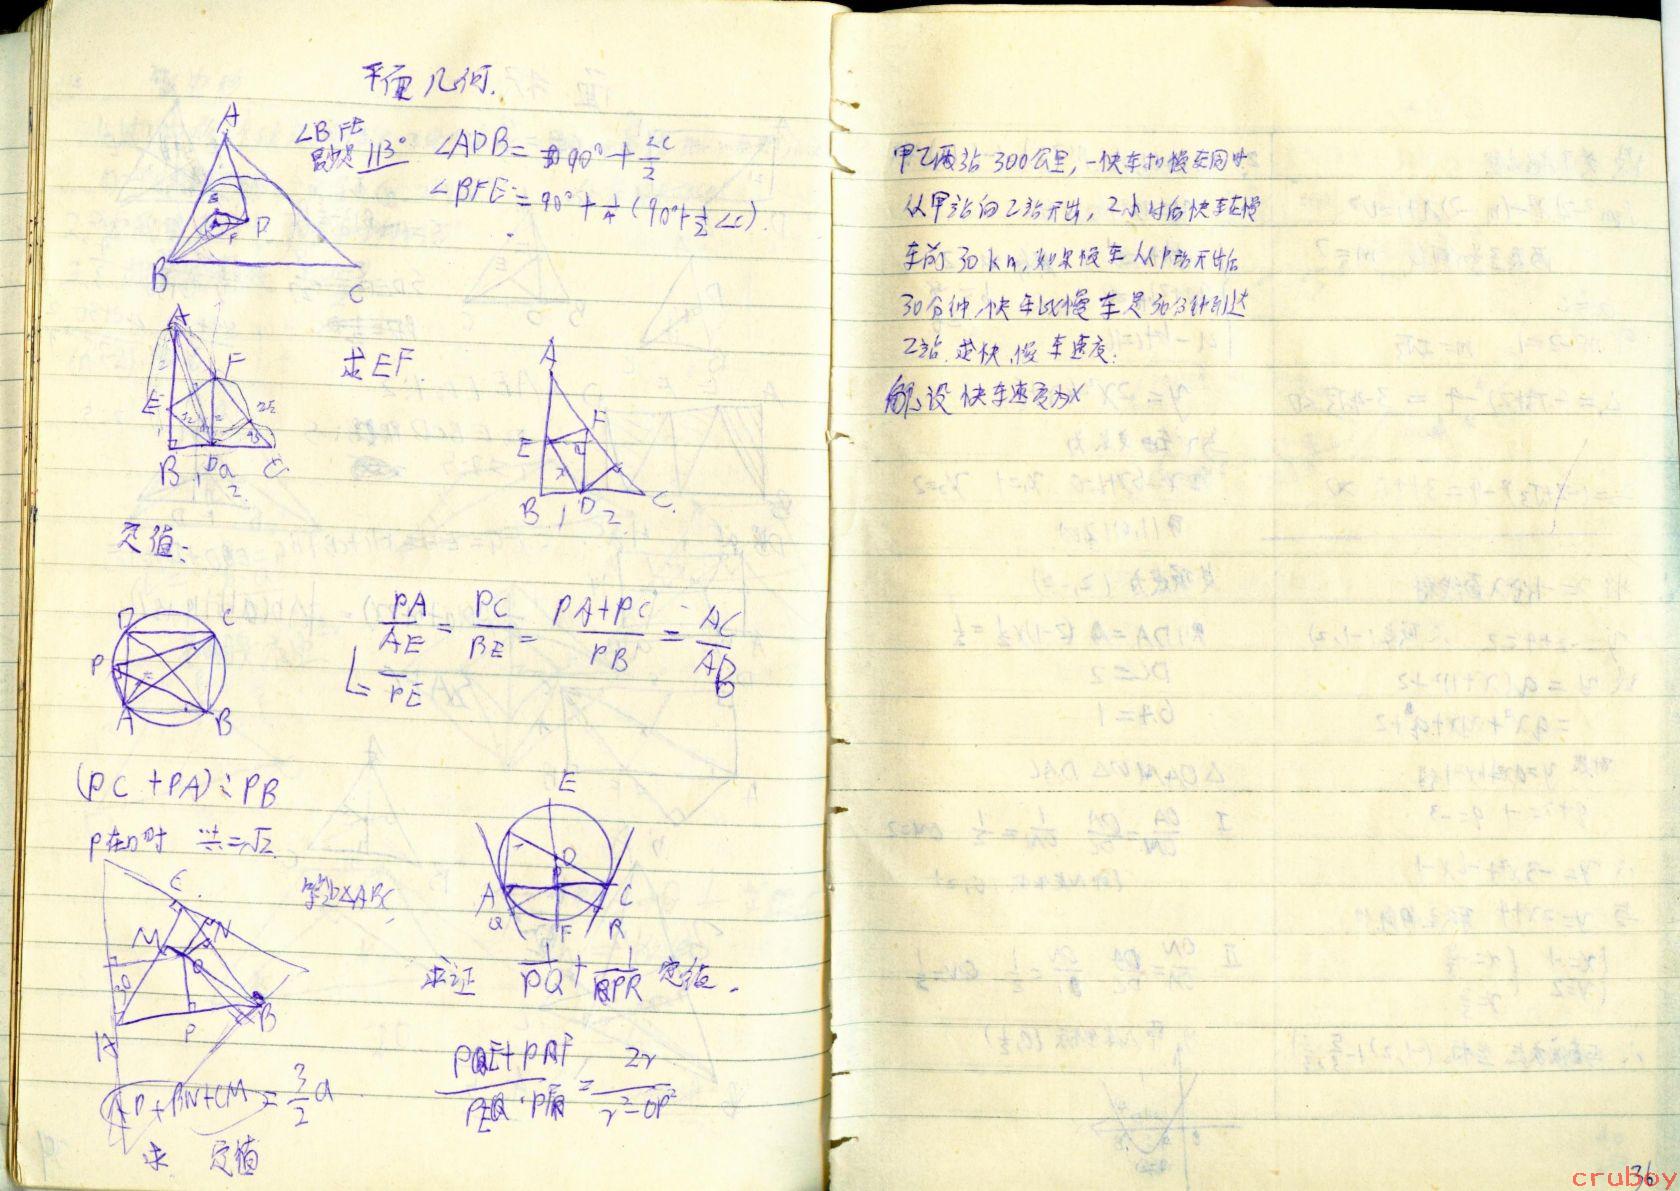 平面几何.
∠BFE
最少是 113°
∠ADB = 90° + ∠C/2
∠BFE = 90° + 1/4 (90° + 1/2 ∠C).
A
E
D
F
B
C
求EF.
A
F
E
B
D
C
1
2
A
F
E
B
D
C.
1
2
定值:
D
C
P
A
B
PA/AE = PC/BE = PA+PC/PB = AC/AB
= /PE
(PC + PA) : PB
P在D时 = √2
等边△ABC,
C
M
N
O
A
P
B
AP + BN + CM = 3/2 a
求 定值
E
O
P
A
C
Q
F
R
求证 1/PQ + 1/PR 定值.
= 2r/r²-OP²
甲乙两站 300公里, 一快车和慢车同时
从甲站向乙站开出, 2小时后快车在慢
车前 30 km, 如果慢车从甲站开出后
30分钟 快车比慢车是30分钟到达
乙站. 求快、慢车速度.
解: 设 快车速度为x
36
cruboy